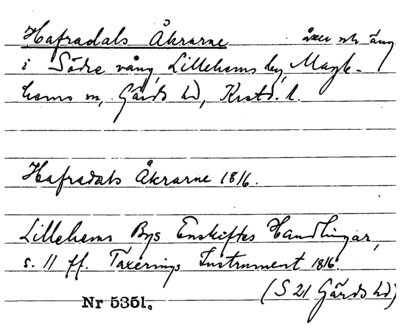 Hafradals Åkrarne åker och äng
i Södre vång, Lillehems by, Magle-
hems sn, Gärds hd, Krstds l.
Hafradals Åkrarne 1816.
Lillehems Bys Enskiftes Handlingar,
s. 11 ff. Taxerings Instrument 1816.
(S 21 Gärds hd)
Nr 5351.